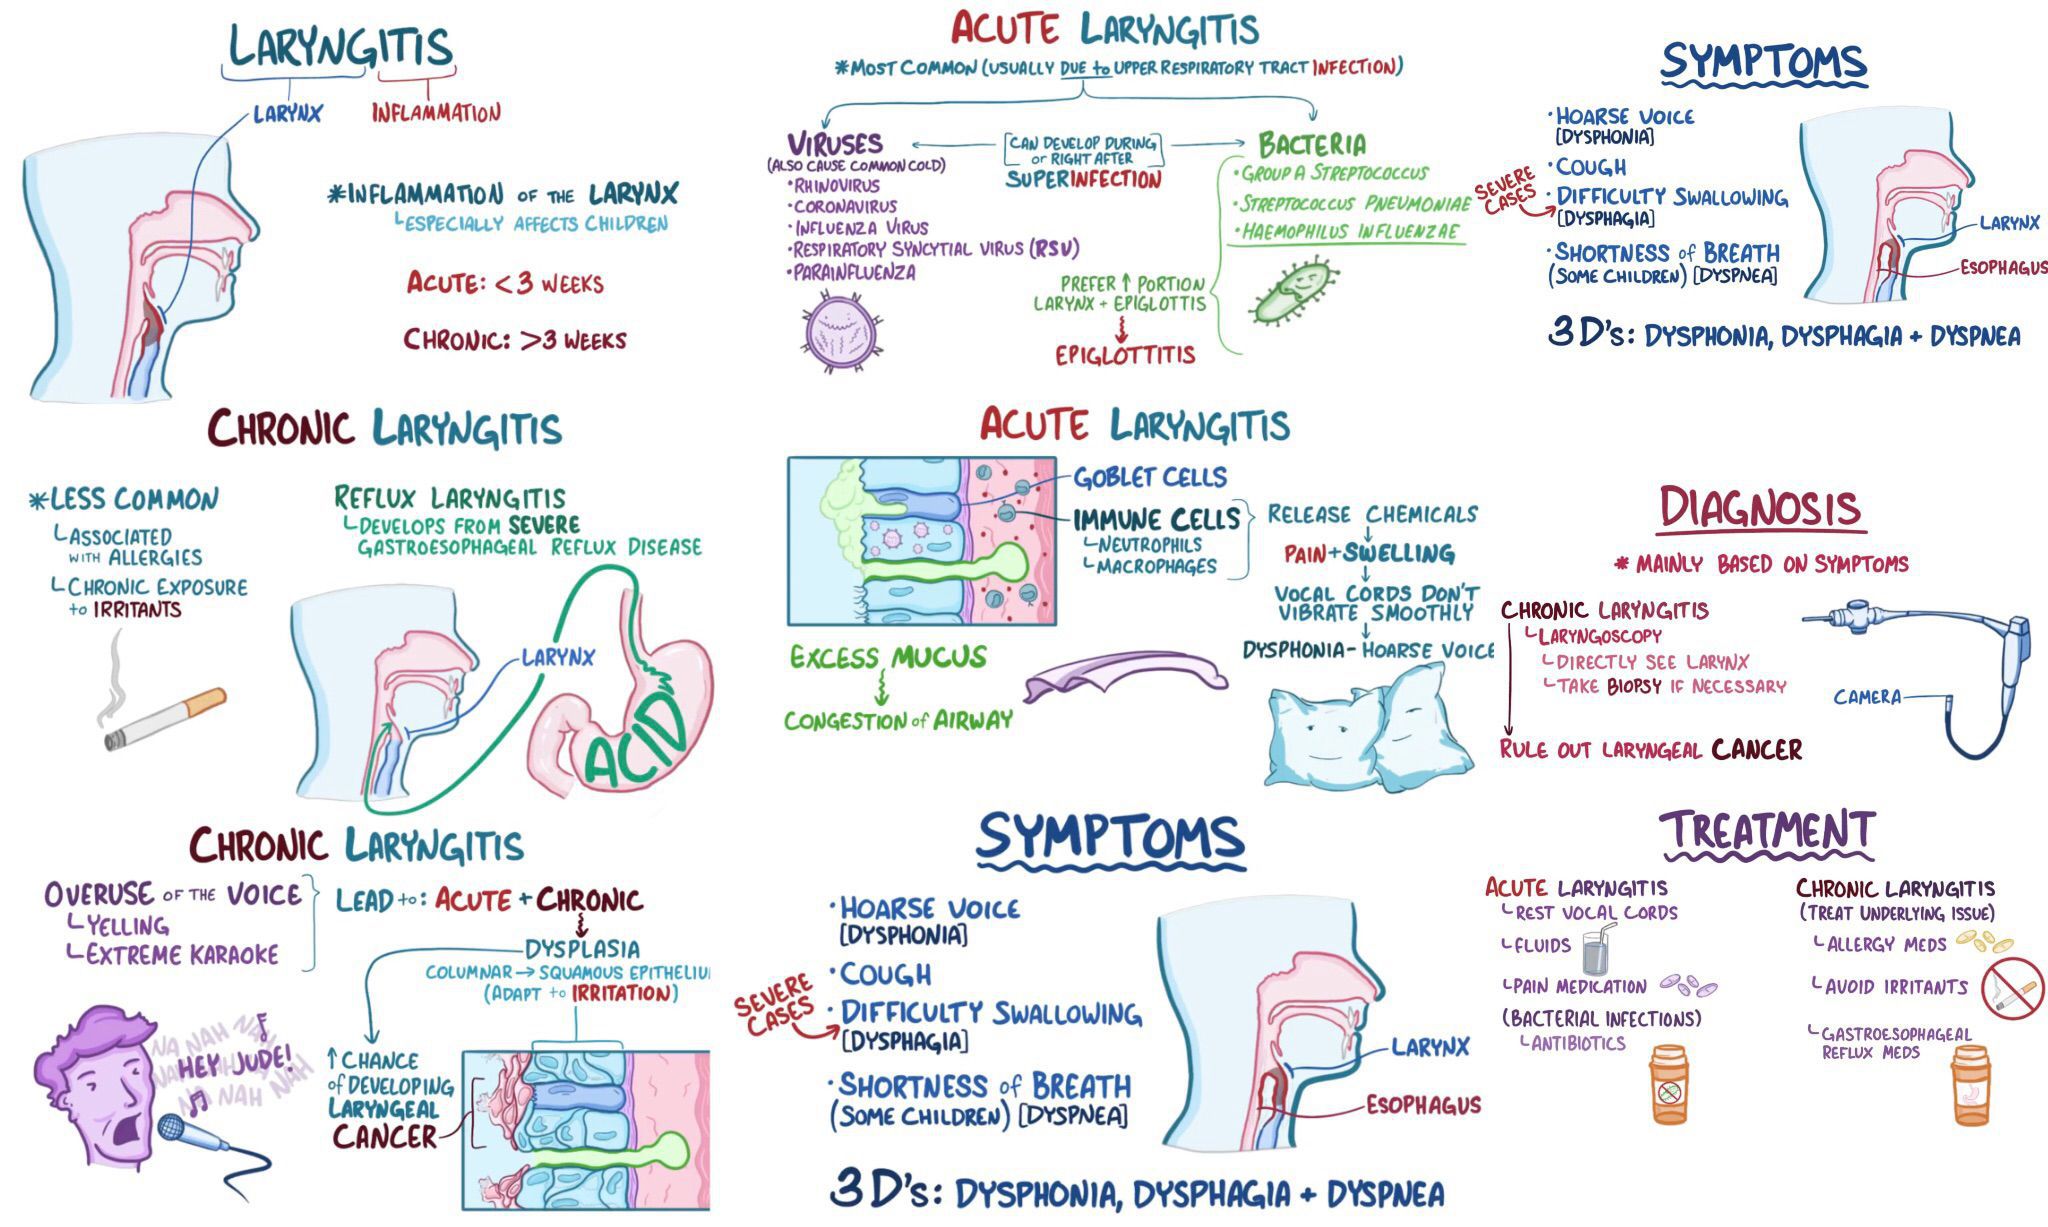 LARYNGITIS
LARYNX
INFLAMMATION
*INFLAMMATION OF THE LARYNX
ESPECIALLY AFFECTS CHILDREN
ACUTE: <3 WEEKS
CHRONIC: >3 WEEKS
ACUTE LARYNGITIS
*MOST COMMON (USUALLY DUE to UPPER RESPIRATORY TRACT INFECTION)
VIRUSES
(ALSO CAUSE COMMON COLD)
•RHINOVIRUS
•CORONAVIRUS
•INFLUENZA VIRUS
•RESPIRATORY SYNCYTIAL VIRUS (RSV)
•PARAINFLUENZA
CAN DEVELOP DURING
or RIGHT AFTER
SUPERINFECTION
BACTERIA
•GROUP A STREPTOCOCCUS
•STREPTOCOCCUS PNEUMONIAE
•HAEMOPHILUS INFLUENZAE
PREFER ↑ PORTION
LARYNX + EPIGLOTTIS
EPIGLOTTITIS
SYMPTOMS
•HOARSE VOICE
[DYSPHONIA]
•COUGH
SEVERE
CASES
•DIFFICULTY SWALLOWING
[DYSPHAGIA]
•SHORTNESS of BREATH
(SOME CHILDREN) [DYSPNEA]
LARYNX
ESOPHAGUS
3 D's: DYSPHONIA, DYSPHAGIA + DYSPNEA
CHRONIC LARYNGITIS
*LESS COMMON
ASSOCIATED
WITH ALLERGIES
CHRONIC EXPOSURE
to IRRITANTS
REFLUX LARYNGITIS
DEVELOPS FROM SEVERE
GASTROESOPHAGEAL REFLUX DISEASE
LARYNX
ACID
ACUTE LARYNGITIS
GOBLET CELLS
IMMUNE CELLS
NEUTROPHILS
MACROPHAGES
RELEASE CHEMICALS
PAIN + SWELLING
VOCAL CORDS DON'T
VIBRATE SMOOTHLY
DYSPHONIA - HOARSE VOICE
EXCESS MUCUS
CONGESTION of AIRWAY
DIAGNOSIS
* MAINLY BASED ON SYMPTOMS
CHRONIC LARYNGITIS
LARYNGOSCOPY
DIRECTLY SEE LARYNX
TAKE BIOPSY IF NECESSARY
CAMERA
RULE OUT LARYNGEAL CANCER
CHRONIC LARYNGITIS
OVERUSE OF THE VOICE
YELLING
EXTREME KARAOKE
LEAD to: ACUTE + CHRONIC
DYSPLASIA
COLUMNAR → SQUAMOUS EPITHELIU
(ADAPT to IRRITATION)
↑ CHANCE
of DEVELOPING
LARYNGEAL
CANCER
NA NAH NAH
HEY JUDE!
NA NAH NAH
SYMPTOMS
•HOARSE VOICE
[DYSPHONIA]
•COUGH
SEVERE
CASES
•DIFFICULTY SWALLOWING
[DYSPHAGIA]
•SHORTNESS of BREATH
(SOME CHILDREN) [DYSPNEA]
LARYNX
ESOPHAGUS
3 D's: DYSPHONIA, DYSPHAGIA + DYSPNEA
TREATMENT
ACUTE LARYNGITIS
REST VOCAL CORDS
FLUIDS
PAIN MEDICATION
(BACTERIAL INFECTIONS)
ANTIBIOTICS
CHRONIC LARYNGITIS
(TREAT UNDERLYING ISSUE)
ALLERGY MEDS
AVOID IRRITANTS
GASTROESOPHAGEAL
REFLUX MEDS